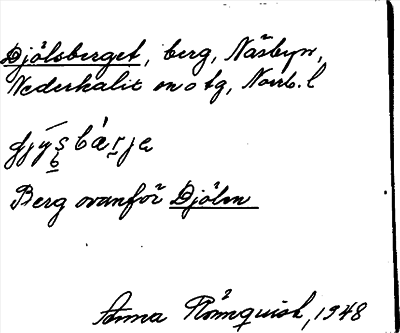 Djölsberget, berg, Näsbyn,
Nederkalix sn o tg, Norrb. l
Berg ovanför Djölen
Anna Rönnquist, 1948